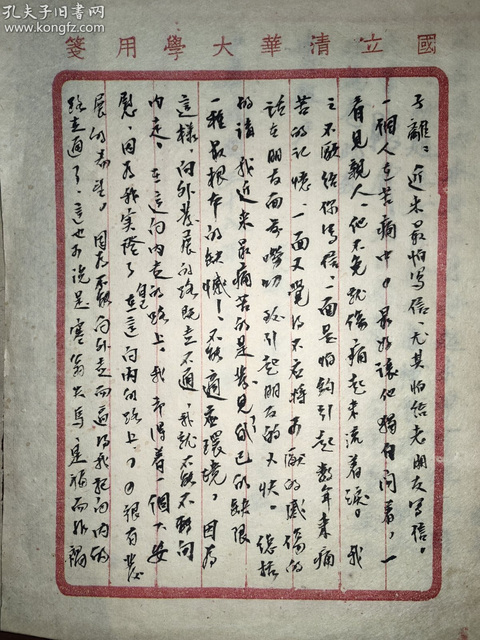 孔夫子旧书网
www.kongfz.com
國立清華大學用箋
子離：近来最怕写信、尤其怕给老朋友写信。
一個人在苦痛中，最好讓他獨自闷着，一
看見親人，他不免就傷痛起来流着淚。我
之不願给你写信，一面是怕钩引起数年来痛
苦的记憶，一面又覺得不应将
的感傷的
话在朋友面前嘮叨致引起朋友的不快。總括
的講，我近来最痛苦的是發見了自己的缺限
一種最根本的缺憾！不能適应環境。因為
這樣，向外發展的路既走不通，我就不能不轉向
内走。在這向内走的路上，我却得着一個大安
慰，因為我实證了自己在這向内的路上，很有發
展的希望。因為不能向外走而逼得我把向内的
路走通了，這也可说是塞翁失馬，是福而非禍